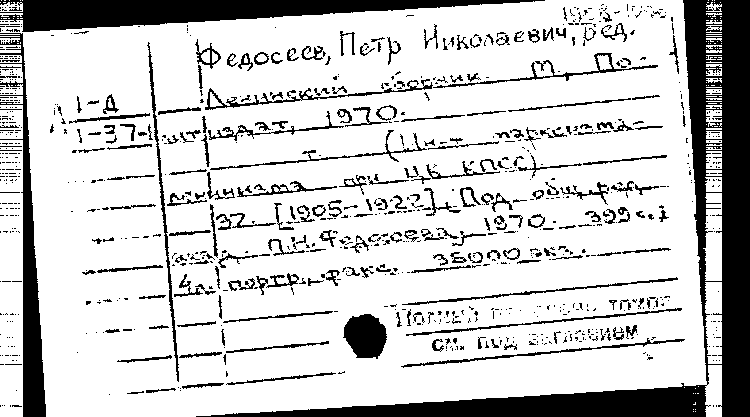 Федосеев, Петр Николаевич, ред.
1-Д Ленинский сборник. М., По-
1-37-1 литиздат, 1970.
т. (Ин-т марксизма-
ленинизма при ЦК КПСС)
37. [1905-1922]. Под общ. ред.
акад. П.Н. Федосеева, 1970. 399 с.;
4 л. портр., факс. 35000 экз.
Полный перечень томов
см. под заглавием